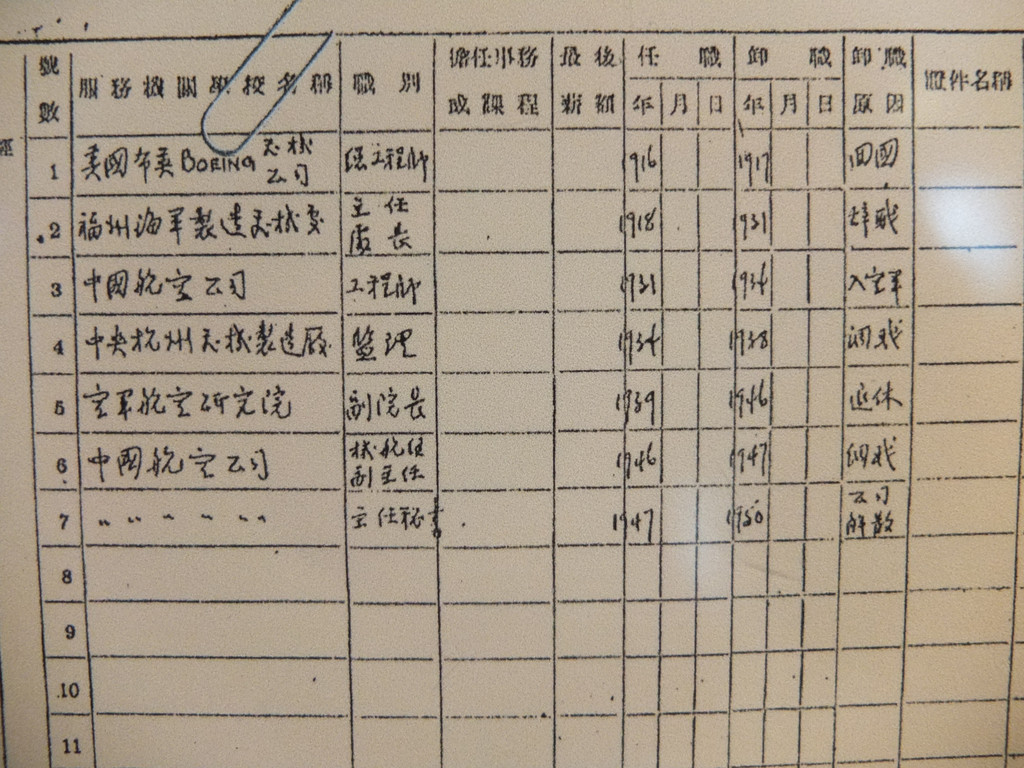 號數 服務機關學校名稱 職別 擔任事務或課程 最後薪額 任職 年 月 日 卸職 年 月 日 卸職原因 證件名稱
1 美國布奧BOEING飞機公司 總工程師 1916 1917 回國
2 福州海軍製造飞機處 主任處長 1918 1931 辞職
3 中國航空公司 工程師 1931 1934 入空軍
4 中央杭州飞機製造廠 監理 1934 1938 调职
5 空軍航空研究院 副院長 1939 1946 退休
6 中國航空公司 機航組副主任 1946 1947 调职
7 〃 〃 〃 〃 〃〃 主任秘書 1947 1950 公司解散
8
9
10
11